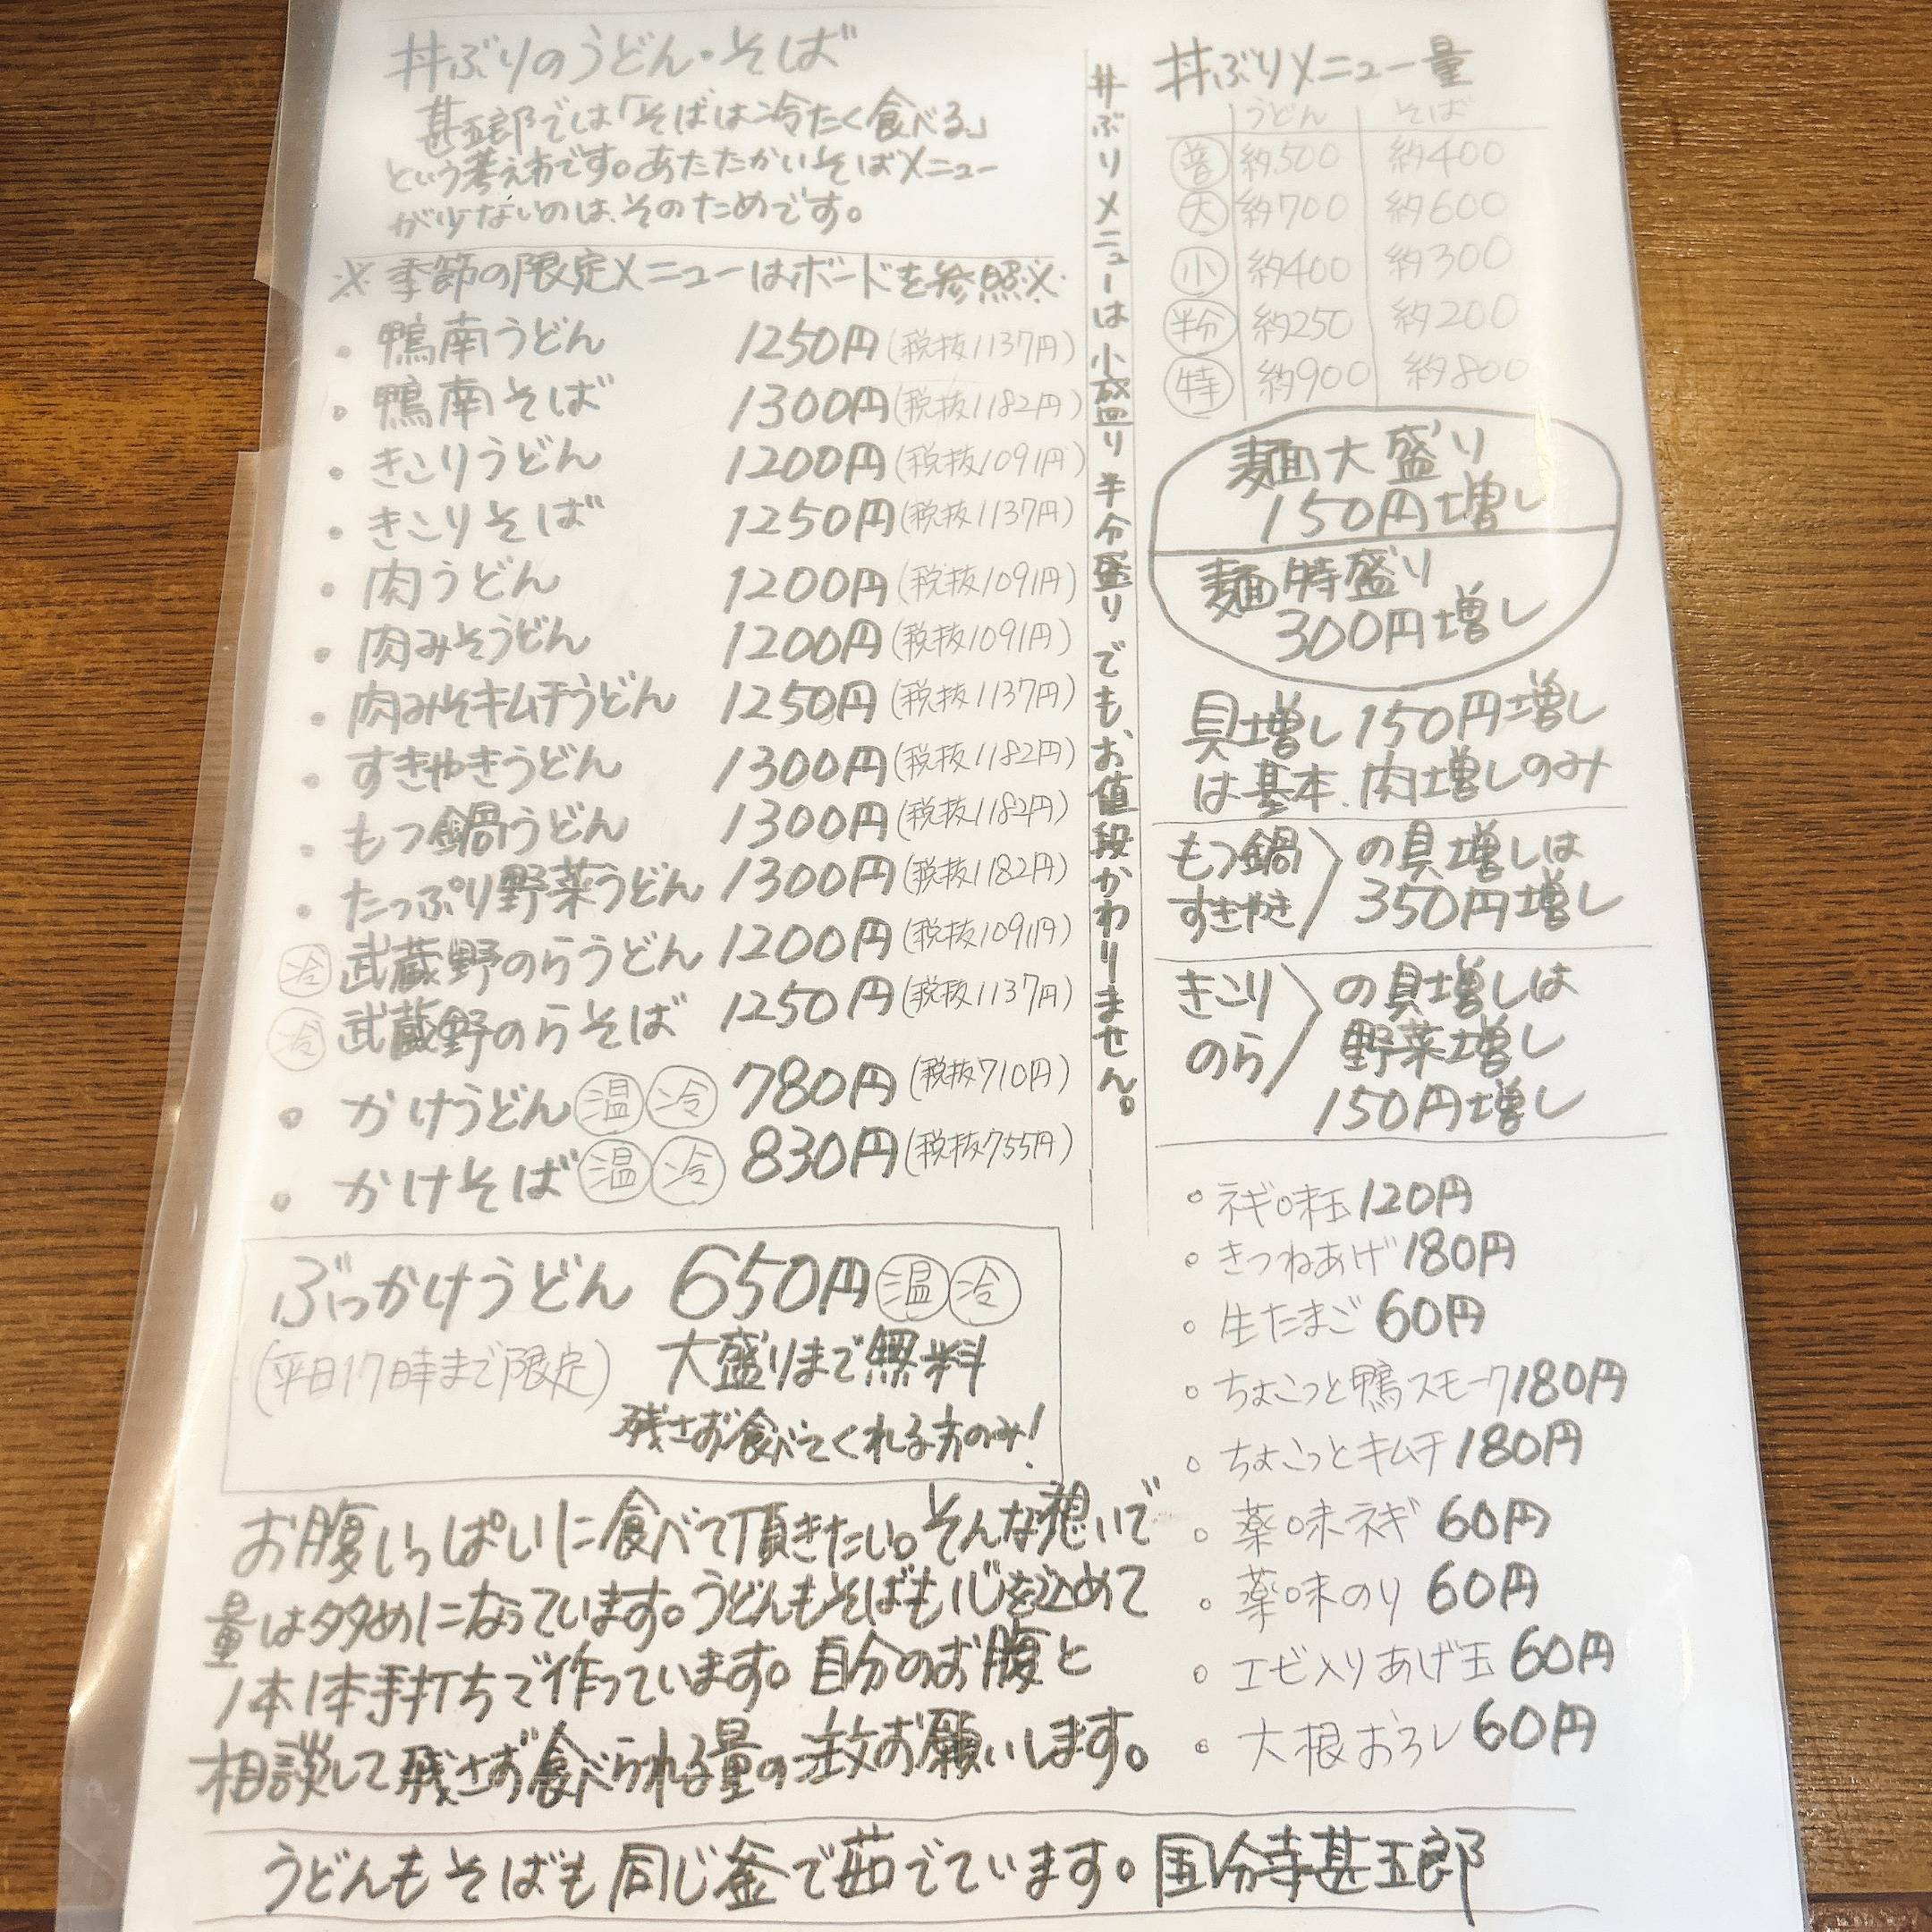 丼ぶりのうどん・そば
甚五郎では「そばは冷たく食べる」
という考え方です。あたたかいそばメニュー
が少ないのは、そのためです。
※季節の限定メニューはボードを参照※
・鴨南うどん 1250円(税抜1137円)
・鴨南そば 1300円(税抜1182円)
・きこりうどん 1200円(税抜1091円)
・きこりそば 1250円(税抜1137円)
・肉うどん 1200円(税抜1091円)
・肉みそうどん 1200円(税抜1091円)
・肉みそキムチうどん 1250円(税抜1137円)
・すきやきうどん 1300円(税抜1182円)
・もつ鍋うどん 1300円(税抜1182円)
・たっぷり野菜うどん 1300円(税抜1182円)
冷 武蔵野のらうどん 1200円(税抜1091円)
冷 武蔵野のらそば 1250円(税抜1137円)
・かけうどん 温 冷 780円(税抜710円)
・かけそば 温 冷 830円(税抜755円)
ぶっかけうどん 650円 温 冷
(平日17時まで限定) 大盛りまで無料
残さず食べてくれる方のみ!
お腹いっぱいに食べて頂きたい。そんな想いで
量は多めになっています。うどんもそばも心を込めて
1本1本手打ちで作っています。自分のお腹と
相談して残さず食べられる量の注文お願いします。
丼ぶりメニューは小盛り半分盛りでも、お値段かわりません。
丼ぶりメニュー量
うどん そば
普 約500 約400
大 約700 約600
小 約400 約300
半分 約250 約200
特 約900 約800
麺大盛り
150円増し
麺特盛り
300円増し
具増し150円増し
は基本、肉増しのみ
もつ鍋 すきやき の具増しは
350円増し
きこり のら の具増しは
野菜増し
150円増し
・ネギ味玉120円
・きつねあげ180円
・生たまご60円
・ちょこっと鴨スモーク180円
・ちょこっとキムチ180円
・薬味ネギ60円
・薬味のり60円
・エビ入りあげ玉60円
・大根おろし60円
うどんもそばも同じ釜で茹でています。国分寺甚五郎